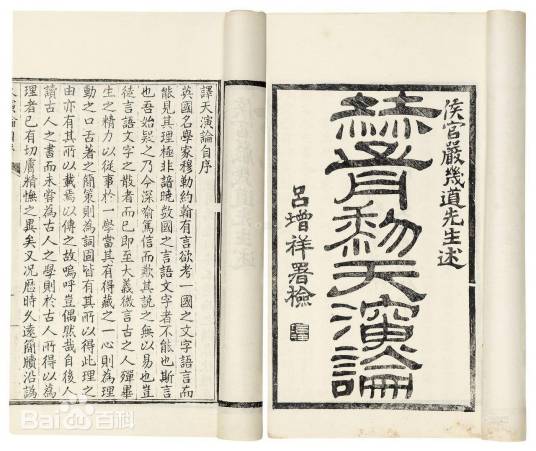 侯官嚴幾道先生述
赫胥黎天演論
呂增祥署檢
譯天演論自序
英國名學家穆勒約翰有言欲考一國之文字語言而
能見其理極非諳曉數國之言語文字者不能也斯言
也吾始疑之乃今深喻篤信而歎其說之無以易也豈
徒言語文字之散者而已即至大義微言古之人殫畢
生之精力以從事於一學當其有得藏之一心則為理
動之口舌著之簡策則為詞固皆有其所以得此理之
由亦有其所以載焉以傳之故嗚呼豈偶然哉自後人
讀古人之書而未嘗為古人之學則於古人所得以為
理者已有切膚精憮之異矣又況歷時久遠簡牘沿譌
Baidu百科